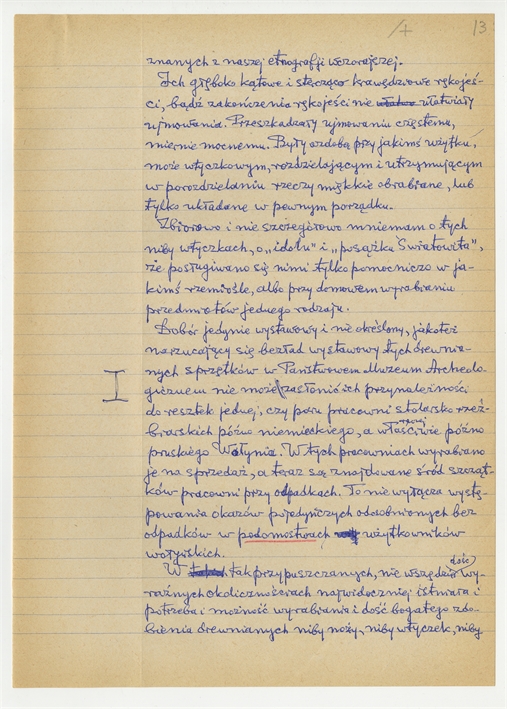 /+ 13
znanych z naszej etnografji wczorajszej.
Ich głęboko kątowe i stercząco krawędziowe rękojeś-
ci, bądź zakończenia rękojeści nie ułatwiały
ujmowania. Przeszkadzały ujmowaniu częstemu,
miernie mocnemu. Były ozdobą przy jakimś użytku,
może wtyczkowym, rozdzielającym i utrzymującym
w porozdzielaniu rzeczy miękkie obrabiane, lub
tylko układane w pewnym porządku.
Zbiorowo i nie szczegółowo mniemam o tych
niby wtyczkach, o „idolu" i „posążku Światowita",
że posługiwano się nimi tylko pomocniczo w ja-
kimś rzemiośle, albo przy domowem wyrabianiu
przedmiotów jednego rodzaju.
Dobór jedynie wystawowy i nie określony, jakoteż
narzucający się bezład wystawowy tych drewnia-
nych sprzętków w Państwowem Muzeum Archeolo-
gicznem nie może zasłonić ich przynależności
do resztek jednej, czy paru pracowni stolarsko rzeź-
biarskich późno niemieckiego, a właściwie późno
pruskiego Wołynia. W tych pracowniach wyrabiano
je na sprzedaż, a teraz są znajdowane śród szcząt-
ków pracowni przy odpadkach. To nie wyłącza wystę-
powania okazów pojedyńczych odosobnionych bez
odpadków w podomostwach użytkowników
wołyńskich.
W tak przypuszczanych, nie wszędzie dość wy-
raźnych okolicznościach najwidoczniej istniała i
potrzeba i możność wyrabiania i dość bogatego zdo-
bienia drewnianych niby noży, niby wtyczek, niby